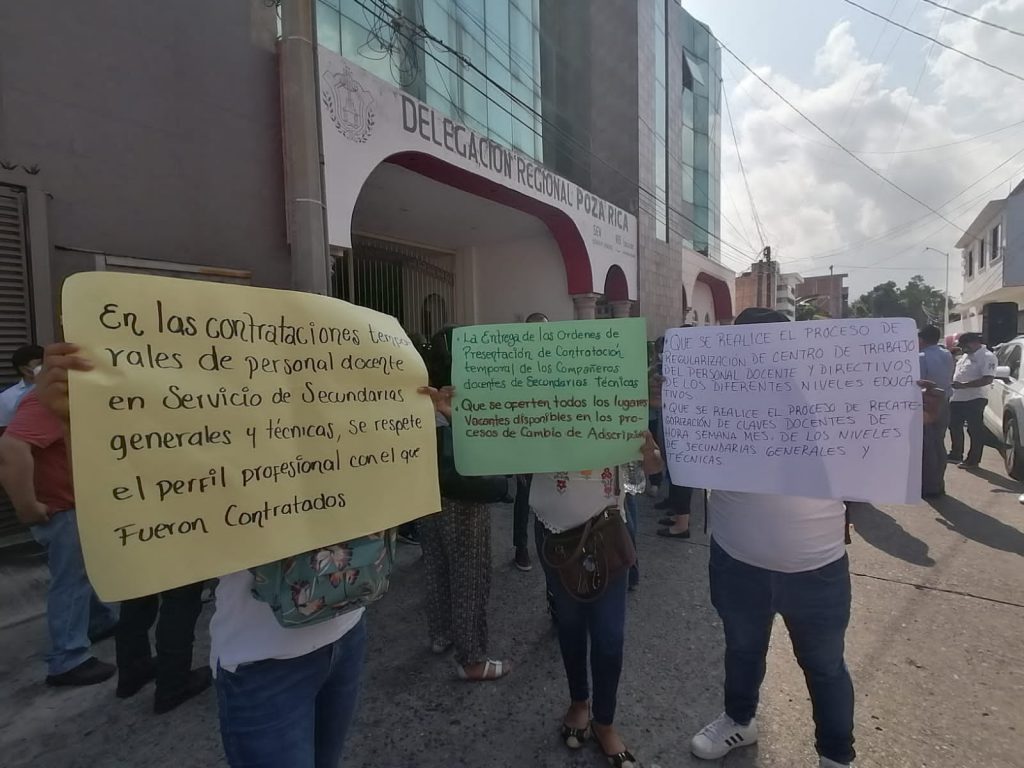 DELEGACION REGIONAL POZA RICA
SEV
En las contrataciones tempo
rales de personal docente
en Servicio de Secundarias
generales y técnicas, se respete
el perfil profesional con el que
Fueron Contratados
• La Entrega de las Ordenes de
Presentación de Contratación
temporal de los Compañeros
docentes de Secundarias Técnicas
• Que se oferten todos los lugares
Vacantes disponibles en los pro-
cesos de Cambio de Adscripción
• QUE SE REALICE EL PROCESO DE
REGULARIZACIÓN DE CENTRO DE TRABAJO
DEL PERSONAL DOCENTE Y DIRECTIVOS
DE LOS DIFERENTES NIVELES EDUCA
TIVOS.
• QUE SE REALICE EL PROCESO DE RECATE-
GORIZACIÓN DE CLAVES DOCENTES DE
HORA SEMANA MES. DE LOS NIVELES
DE SECUNDARIAS GENERALES Y
TÉCNICAS.